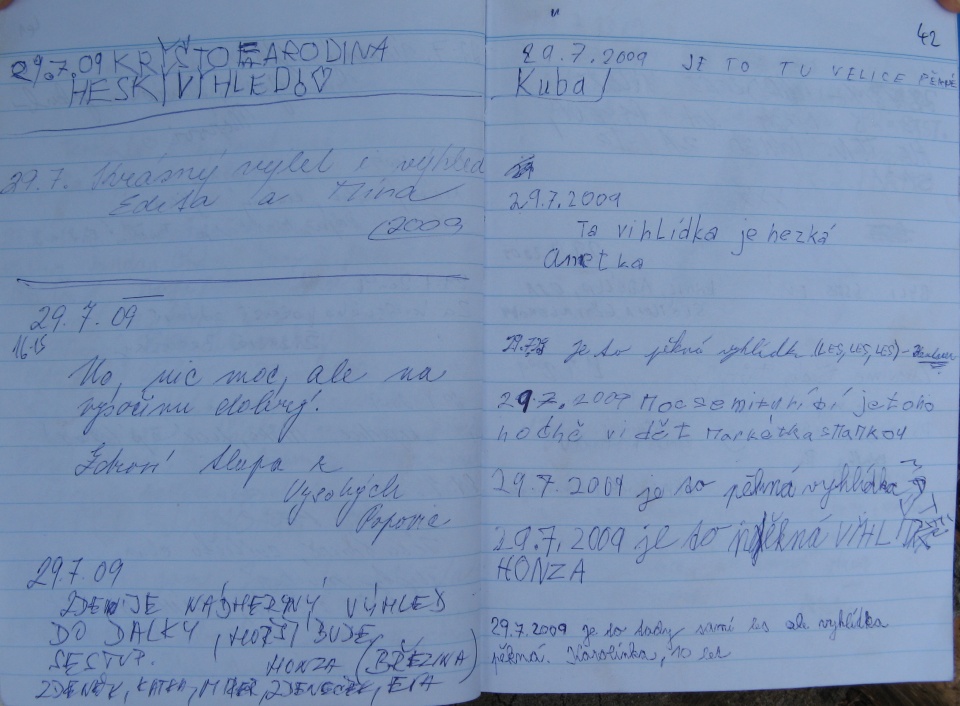 29.7.09 KRYŠTOF A RODINA
HESKÝ VÍHLED♡
29.7. Krásný výlet i výhled
Edita a Nina
(2009)
29.7.09
16.15
No, nic moc, ale na
vysočinu dobrý.
Zdraví tlupa z
Vysokých
Popovic
29.7.09
ZDE JE NÁDHERNÝ VÝHLED
DO DALKY, HORŠÍ BUDE
SESTUP. HONZA (BŘEZINA)
ZDENĚK, KATKA, ZDENEČEK, EVA
42
29.7.2009 JE TO TU VELICE PĚKNÉ
Kuba
29.7.2009
Ta vihlídka je hezká
Anetka
je to pěkná vyhlídka (LES, LES, LES) -
29.7.2009 Moc se mi tu líbí je toho
hodně vidět Markétka s mamkou
29.7.2009 je to pěkná vyhlídka
29.7.2009 je to pěkná VIHLÍDKA
HONZA
29.7.2009 je to tady samí les ale vyhlídka
pěkná. Karolínka, 10 let